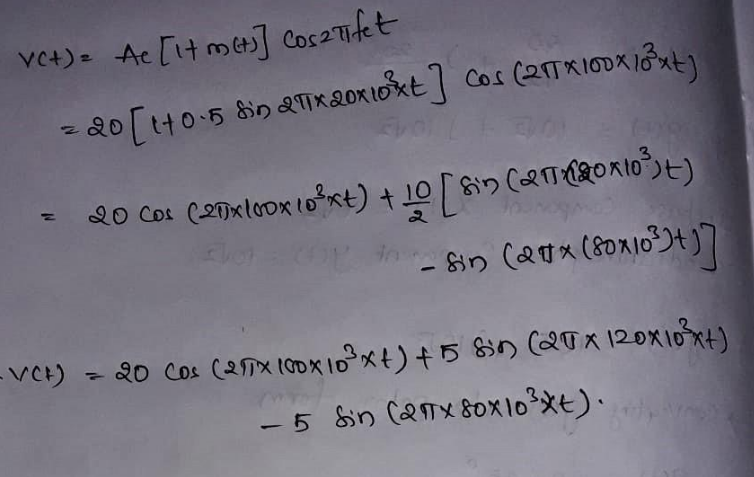 V(t) = Ac [1+ m(t)] cos2πfct
= 20 [1+0.5 sin 2π×20×10³×t] cos (2π×100×10³×t)
= 20 cos (2π×100×10³×t) + 10/2 [sin (2π×(120×10³)t)
- sin (2π×(80×10³)t)]
V(t) = 20 cos (2π×100×10³×t) + 5 sin (2π×120×10³×t)
- 5 sin (2π×80×10³×t).